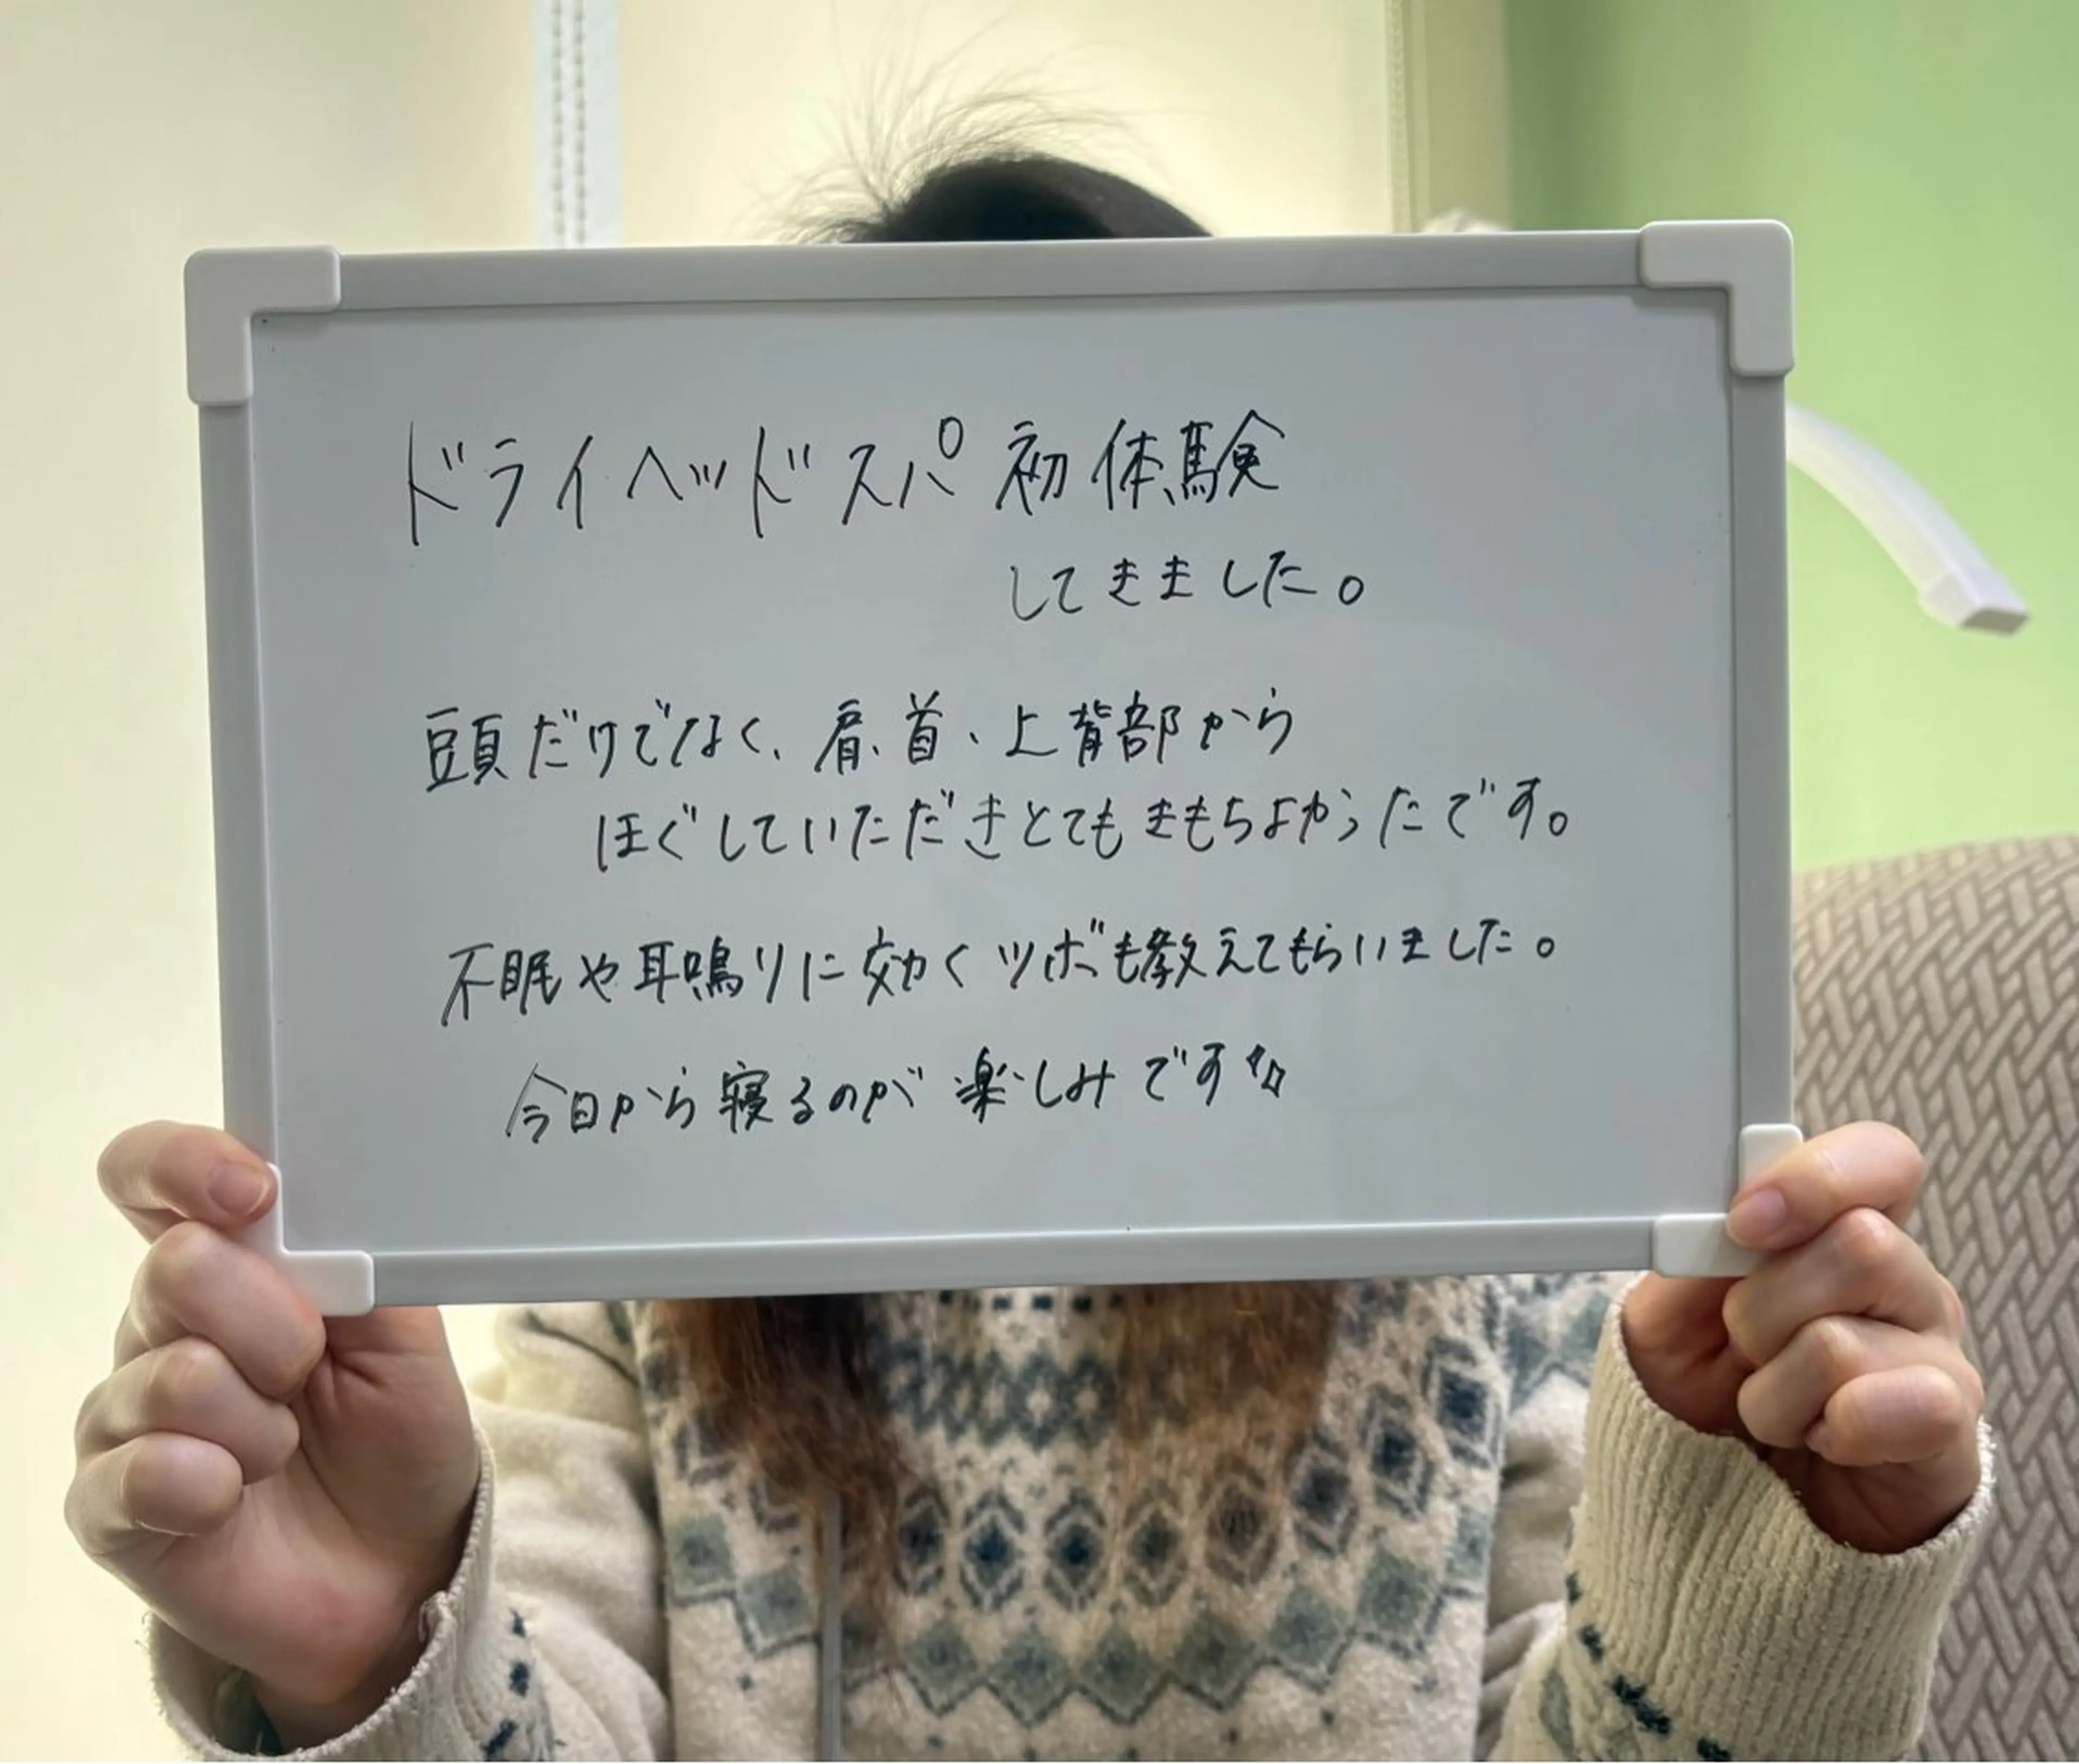 ドライヘッドスパ初体験
してきました。
頭だけでなく、肩、首、上背部から
ほぐしていただきとてもきもちよかったです。
不眠や耳鳴りに効くツボも教えてもらいました。
今日から寝るのが楽しみです✨